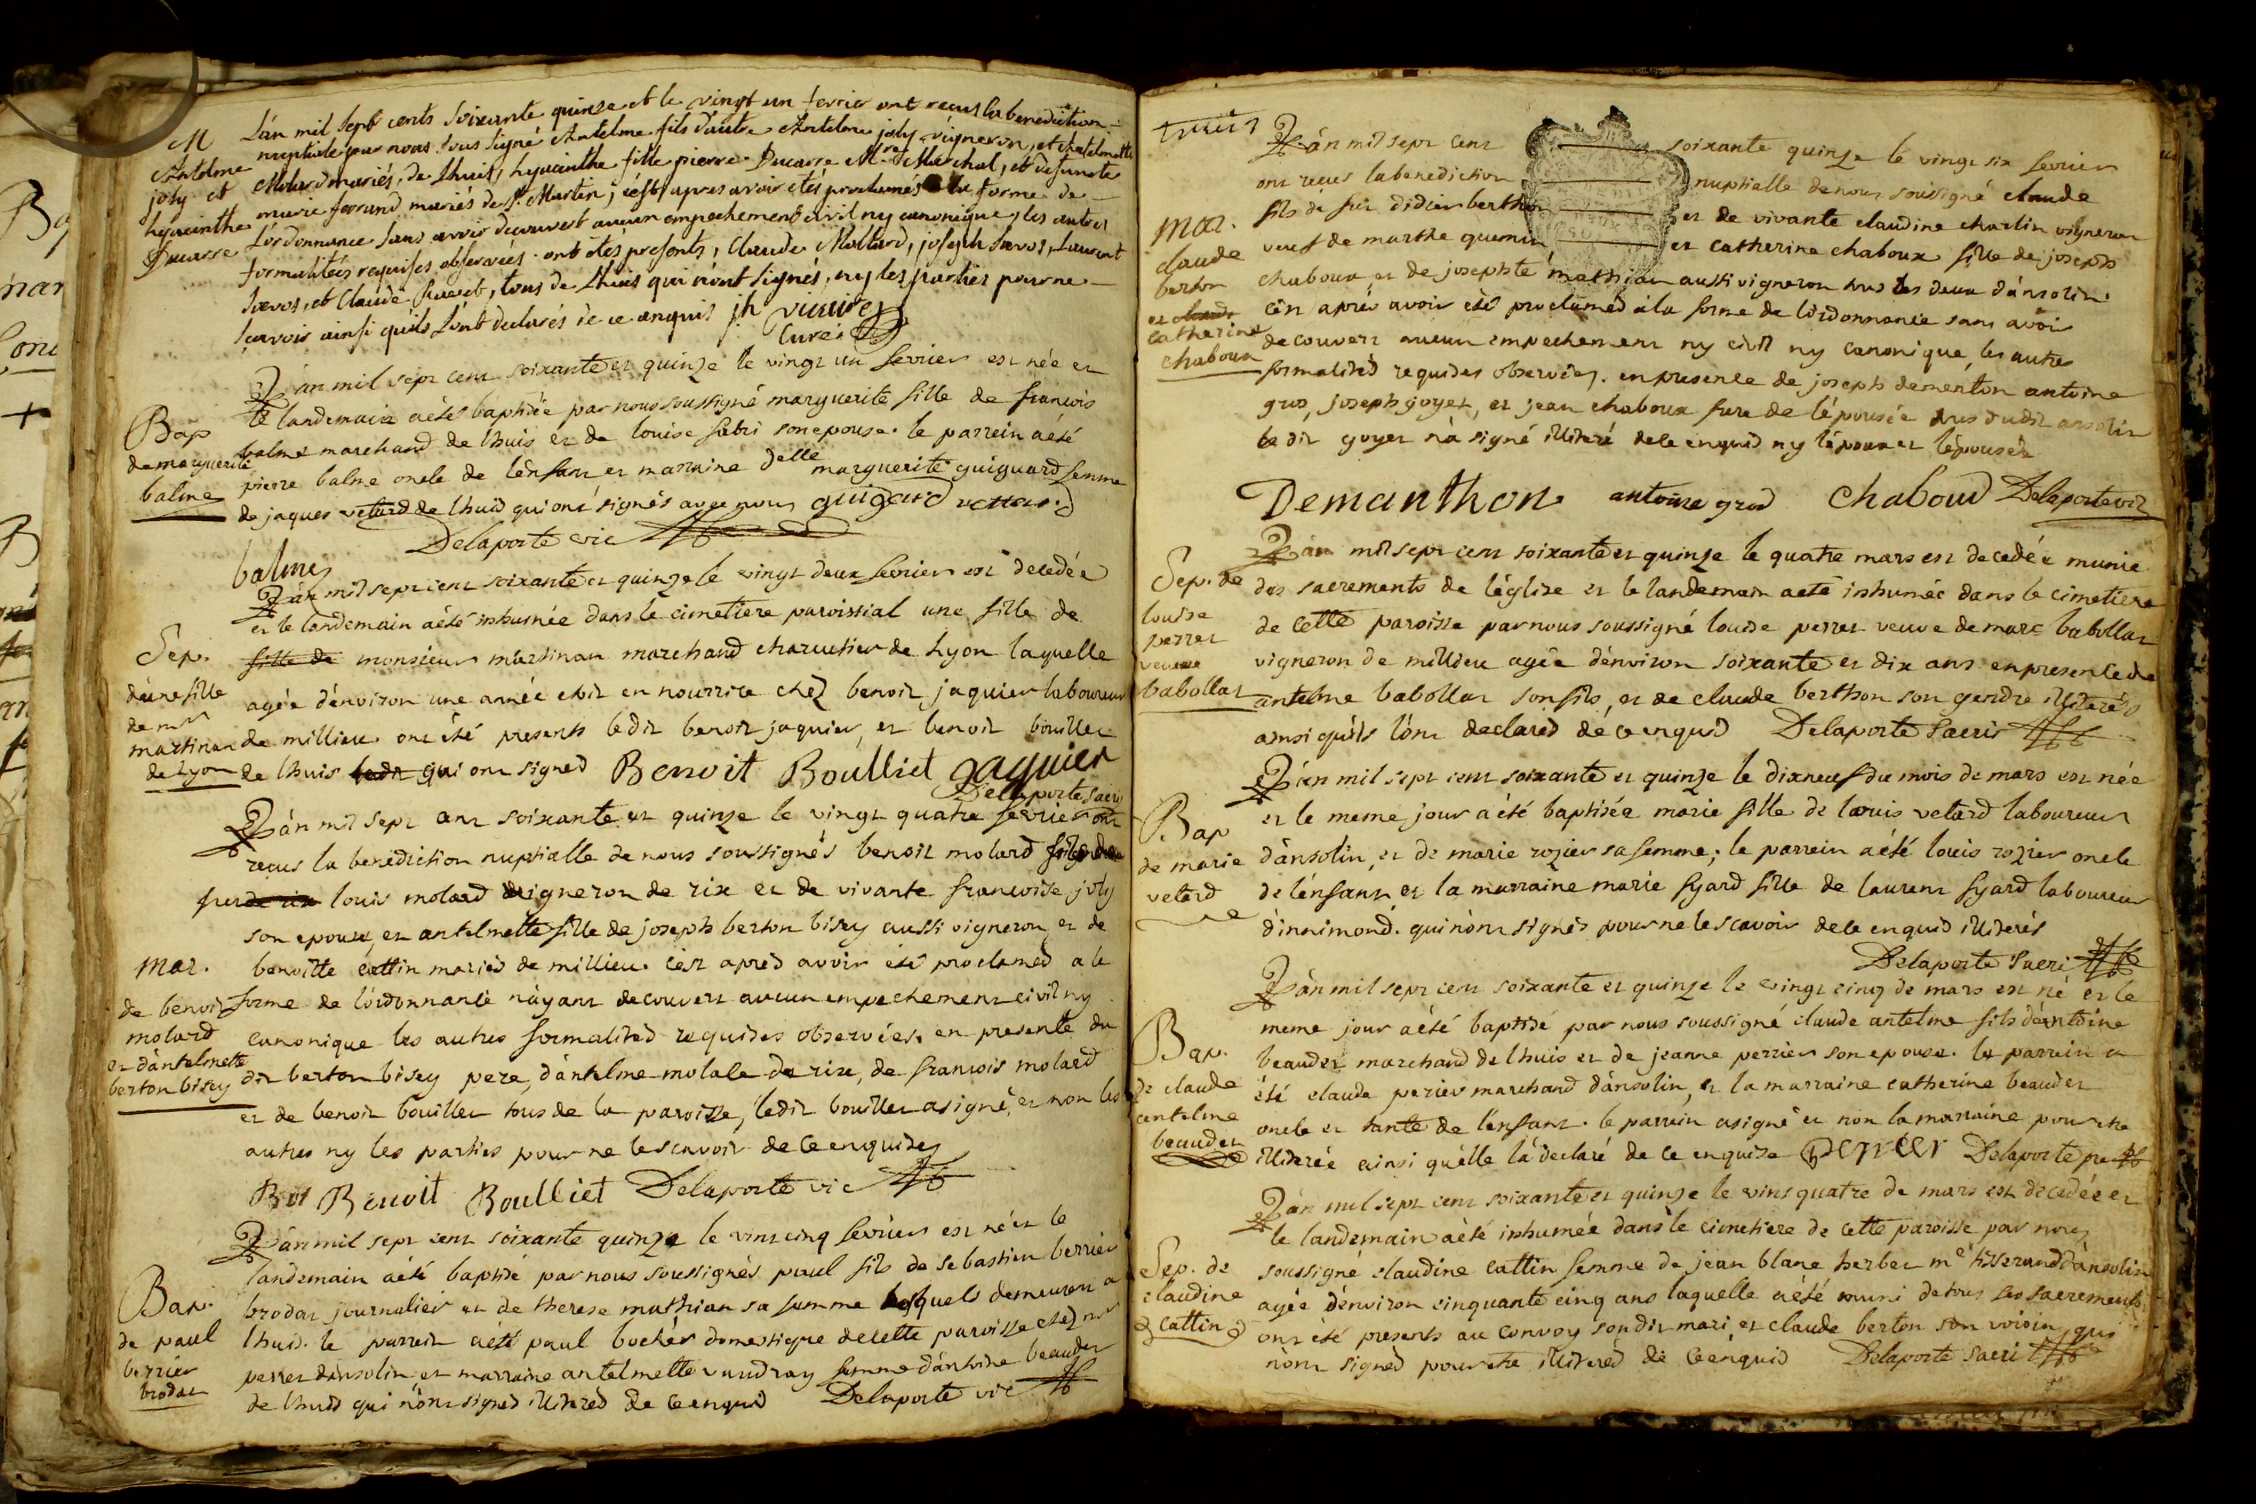 M
Antelme
joly et
hyacinthe
Ducarre
Lán mil sept cents soixante quinze et le vingt un fevrier ont reçus la benediction
nuptiale par nous sous signé Antelme fils d'autre Antelme joly vigneron, et
Molard mariés, de Lhuis, hyacinthe fille pierre Ducarre Mre Marchal, et defunte
marie ferrand mariés de St. Martin; cést apres avoir etés proclamés a la forme de
Lórdonnance sans avoir decouvert aucun empechement civil ny canonique, les autres
formalitées requises observées. ont étés presents, Claude Mollard, joseph
et Claude tous de Lhuis qui nónt signés, ny les parties pour ne
sçavoir ainsi quils lónt declarés de ce enquis jh
Curé
Bap
de marguerite
balme
Lán mil sept cent soixante et quinze le vingt un fevrier est née et
le landemain aétes baptisée par nous soussigné marguerite fille de francois
balme marchand de lhuis et de louise fabri son epouse. le parrein aété
pierre balme oncle de lénfant et marraine delle marguerite guiguard femme
de jaques vetard de lhuis qui ont signés avec nous guigard
Delaporte vic
balme
Sep.
dúne fille
de mr
martinan
de Lyon
Lán mil sept cent soixante et quinze le vingt deux fevrier est decedée
et le landemain aété inhumée dans le cimetiere paroissial une fille de
fille de monsieur martinan marchand charcutier de Lyon laquelle
agée dénviron une année etoit en nourrice chéz benoit jaquier laboureur
de millieu. ont été presents ledit benoit jaquier, et benoit bouillet
de lhuis ledit qui ont signés Benoit Boulliet Jaquier
Delaporte sacri
mar.
de benoit
molard
et dántelmette
berton bisey
Lán mil sept cent soixante et quinze le vingt quatre fevrier ont
recus la benediction nuptialle de nous soussignés benoit molard fils de
feu de rix louis molard vigneron de rix et de vivante francoise joly
son epouse, et antelmette fille de joseph berton bisey aussi vigneron et de
benoitte cattin mariés de millieu. cést aprés avoir été proclamés a la
forme de lórdonnance náyant decouvert aucun empechement civil ny
canonique les autres formalités requises observées. en presence du
dit berton bisey pere, dántelme molale de rix, de francois molard
et de benoit bouillet tous de la paroisse, ledit bouillet asigné, et non les
autres ny les parties pour ne le scavoir de ce enquises
Bol Benoit Boulliet Delaporte vic
Bap.
de paul
berrier
brodat
Lán mil sept cent soixante quinze le vint cinq fevrier est né et le
landemain aété baptisé par nous soussignés paul fils de sebastien berrier
brodat journalier et de therese mathian sa femme lesquels demeurent a
lhuis. le parrein aété paul bochér domestique de cette paroisse chéz mr
perret dánsolin et marraine antelmette vaudray femme dántoine beaudet
de lhuis qui nónt signés illiterés de ce enquis Delaporte vic
mar.
claude
berton
et
catherine
chaboux
Lán mil sept cent soixante quinze le vingt six fevrier
ont reçus la benediction nuptialle de nous soussigné claude
fils de feu didier berthon et de vivante claudine charlin vigneron
veuf de marthe quemin et catherine chaboux fille de joseph
chaboux et de josephte mathian aussi vigneron tous les deux dánsolin.
cén aprés avoir été proclamés á la forme de lórdonnance sans avoir
decouvert aucun empechement ny civil ny canonique, les autres
formalités requises observées. en presence de joseph dementon antoine
gros, joseph goyet, et jean chaboux frere de lépousée tous dudit ansolin
le dit goyet ná signé illiteré de ce enquis ny lépoux et lépousée
Demanthon antoine gros Chaboud Delaporte vic
Sep. de
louise
perret
veuve
babollat
Lán mil sept cent soixante et quinze le quatre mars est decedée munie
des sacrements de léglise et le landemain aeté inhumée dans le cimetiere
de cette paroisse par nous soussigné louise perret veuve de marc babollat
vigneron de millieu agée dénviron soixante et dix ans en presence de
antelme babollat son fils, et de claude berthon son gendre illiterés
ainsi quils lónt declarés dé ce enquis Delaporte Sacri
Bap
de marie
vetard
Lán mil sept cent soixante et quinze le dixneuf du mois de mars est née
et le meme jour a été baptisée marie fille de louis vetard laboureur
dánsolin et de marie rozier sa femme; le parrein aété louis rozier oncle
de lénfant, et la marraine marie fyard fille de laurent fyard laboureur
dínnimond. qui nónt signés pour ne le scavoir de ce enquis illiterés
Delaporte Sacri
Bap.
de claude
antelme
beaudet
Lán mil sept cent soixante et quinze le vingt cinq de mars est né et le
meme jour aété baptisé par nous soussigné claude antelme fils dántoine
beaudet marchand de lhuis et de jeanne perrier son epouse. le parrein a
été claude perier marchand dánsolin, et la marraine catherine beaudet
oncle et tante de lénfant. le parrein asigné et non la marraine pour etre
illiterée ainsi quélle lá declaré de ce enquise perrier Delaporte pre
Sep. de
claudine
cattin
Lán mil sept cent soixante et quinze le vint quatre de mars est decedée et
le landemain aété inhumée dans le cimetiere de cette paroisse par nous
soussigné claudine cattin femme de jean blanc herbet me tisserand dánsolin
agée dénviron cinquante cinq ans laquelle aété muni de tous les sacrements.
ont été presents au convoy son dit mari et claude berton son voisin, qui
nónt signés pour etre illiterés de ce enquis Delaporte Sacri